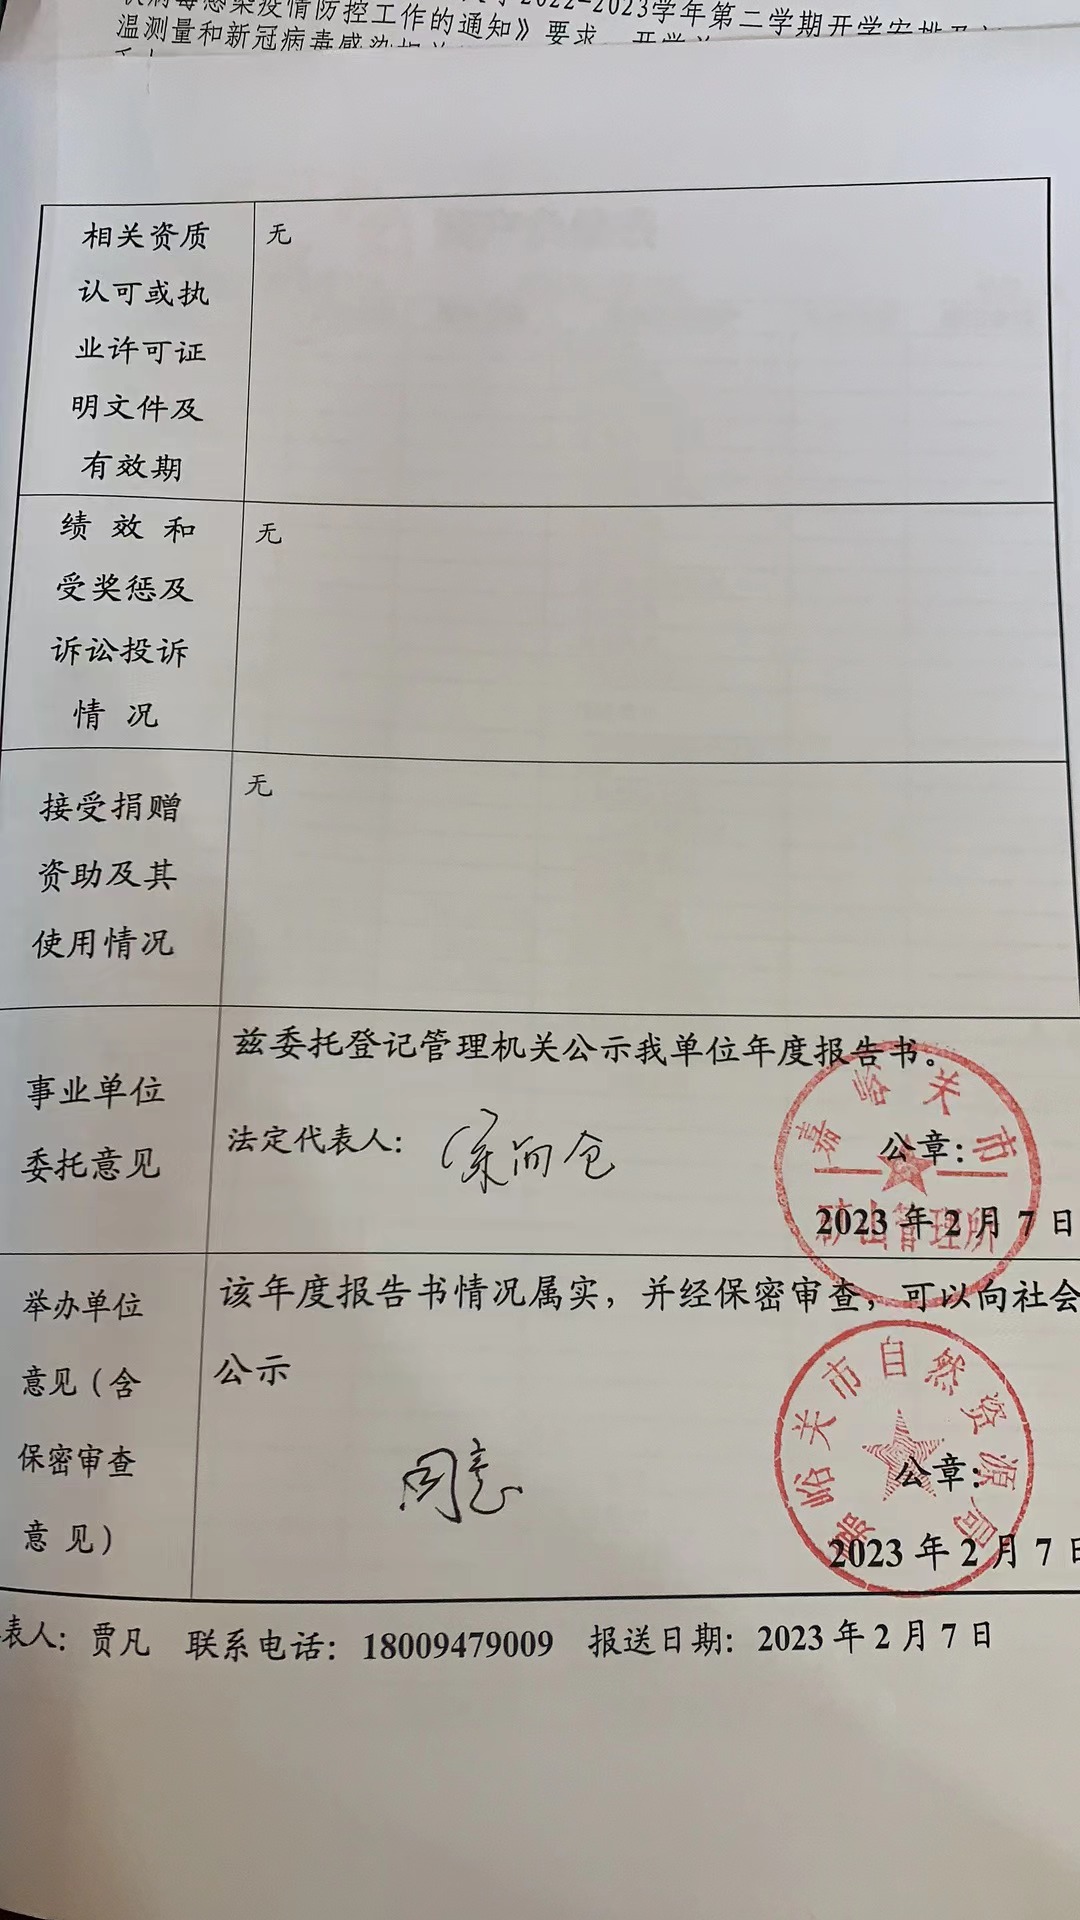 2022-2023学年第二学期开学安排及
病毒感染疫情防控工作的通知》要求
温测量和新冠病毒感染相关
相关资质
认可或执
业许可证
明文件及
有效期
无
绩效和
受奖惩及
诉讼投诉
情况
无
接受捐赠
资助及其
使用情况
无
事业单位
委托意见
兹委托登记管理机关公示我单位年度报告书。
法定代表人：
公章：
2023年2月7日
嘉峪关市
矿山管理所
举办单位
意见（含
保密审查
意见）
该年度报告书情况属实，并经保密审查，可以向社会
公示
同意
公章：
2023年2月7日
嘉峪关市自然资源局
表人：贾凡 联系电话：18009479009 报送日期：2023年2月7日